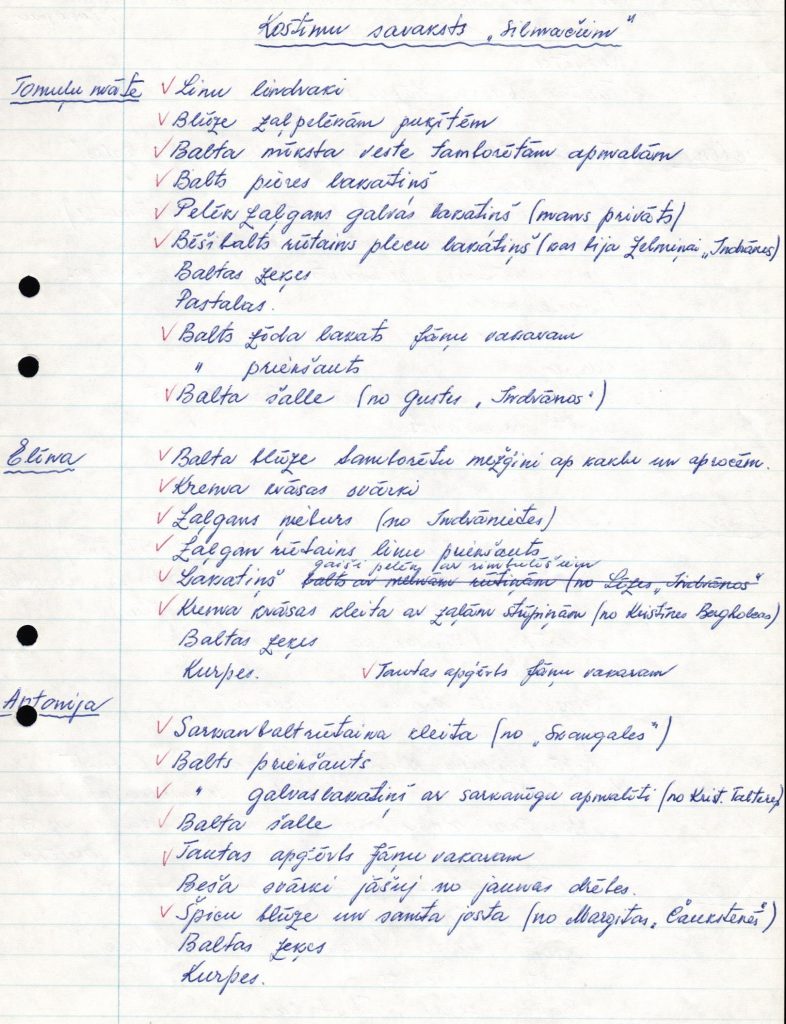 Kostīmu saraksts „Silmačiem"
Tomuļu māte ✓ Linu lindraki
✓ Blūze zaļpelēkām puķītēm
✓ Balta mīksta veste tamborētām apmalām
✓ Balts pieres lakatiņš
✓ Pelēk zaļgans galvas lakatiņš (mans privāts)
✓ Bēši balts rūtains plecu lakatiņš (kas bija Zelmiņai „Indrānos)
Baltas zeķes
Pastalas.
✓ Balts zīda lakats Jāņu vakaram
" priekšauts
✓ Balta šalle (no Gustes „Indrānos")
Elīna ✓ Balta blūze tamborētu mežģīni ap kaklu un aprocēm.
✓ Krēma krāsas svārki
✓ Zaļgans ņieburs (no Indrānietes)
✓ Zaļgan rūtains linu priekšauts
gaiši pelēks ar rimbulīšiem
✓ Lakatiņš balts ar melnām rūtiņām (no Līzes „Indrānos"
✓ Krēma krāsas kleita ar zaļām strīpiņām (no Kristīnes Bergholcas)
Baltas zeķes
Kurpes. ✓ Tautas apģērbs Jāņu vakaram
Antonija
✓ Sarkanbaltrūtaina kleita (no „Skangales")
✓ Balts priekšauts
✓ " galvaslakatiņš ar sarkanīgu apmalīti (no Krist.
✓ Balta šalle
✓ Tautas apģērbs Jāņu vakaram
Beša svārki jāšuj no jaunas drēbes.
✓ Špicu blūze un samta josta (no Margitas „Čaukstenēs")
Baltas zeķes
Kurpes.